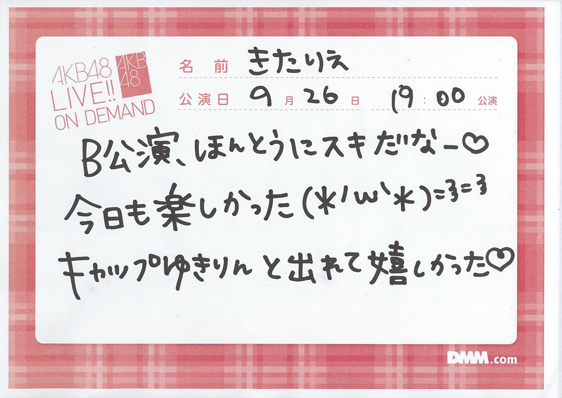 AKB48
LIVE!!
ON DEMAND
AKB
48
名前 きたりえ
公演日 9月26日 19:00 公演
B公演、ほんとうにスキだなー♡
今日も楽しかった(*ﾉωヽ*)=3=3
キャップゆきりんと出れて嬉しかった♡
DMM.com